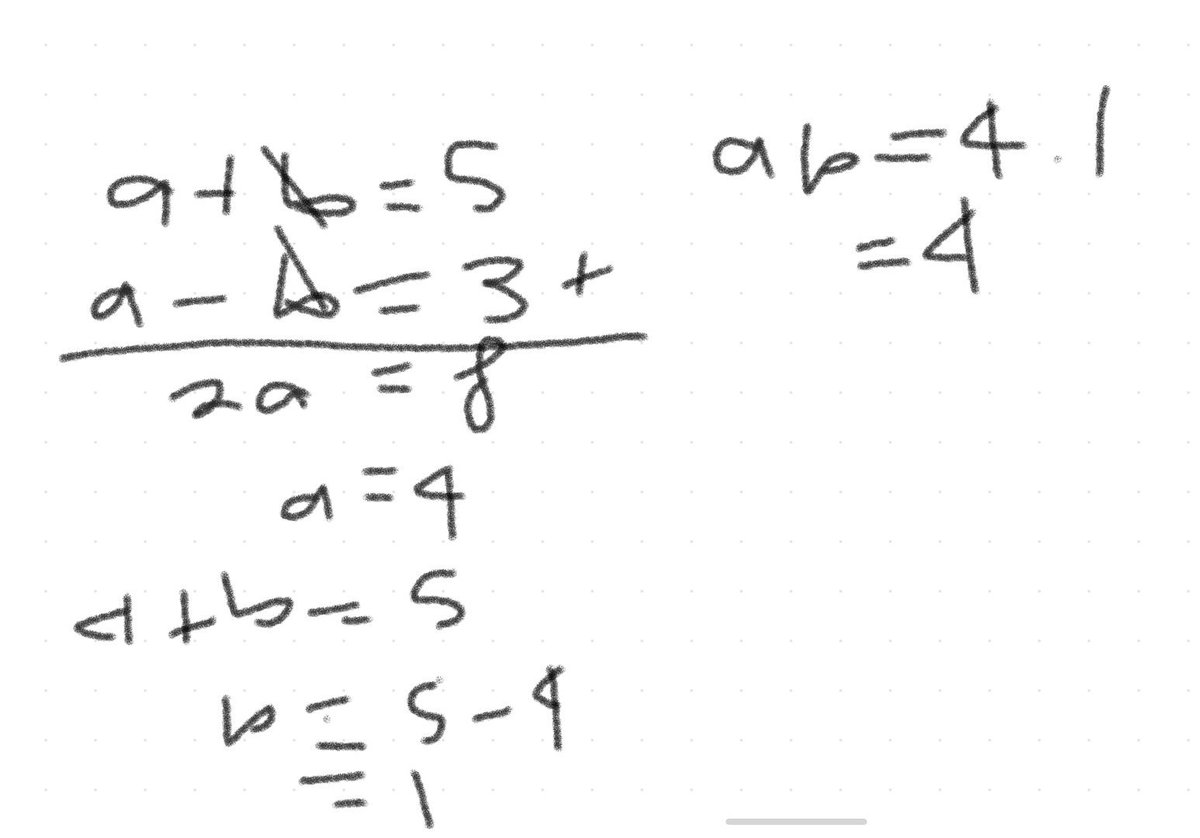 a + b = 5
a - b = 3 +
2a = 8
a = 4
4 + b = 5
b = 5 - 4
= 1
ab = 4 . 1
= 4